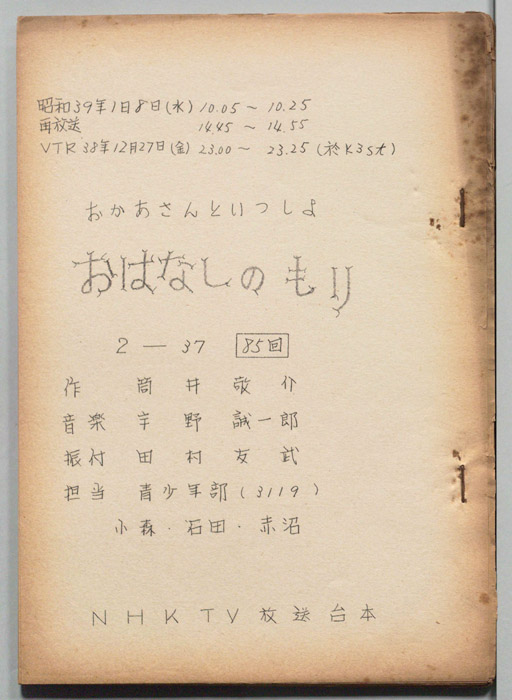 昭和39年1月8日(水) 10.05〜10.25
再放送 14.45〜14.55
VTR 38年12月27日(金) 23.00〜23.25 (於K3st)
おかあさんといっしょ
おはなしのもり
2―37 85回
作 筒井敬介
音楽 宇野誠一郎
振付 田村友武
担当 青少年部(3119)
小森・石田・赤沼
NHKTV放送台本